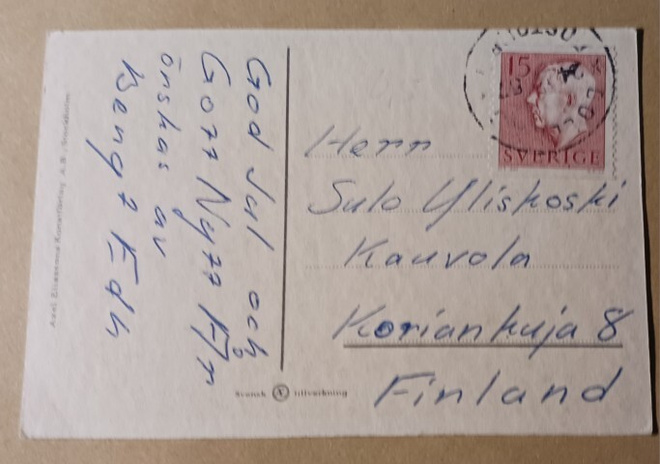 God Jul och
Gott Nytt År
önskas av
Bengt Edh
Herr
Sulo Yliskoski
Kauvola
Koriankuja 8
Finland
15
SVERIGE
Axel Eliassons Konstförlag A.B. Stockholm
Svensk tillverkning